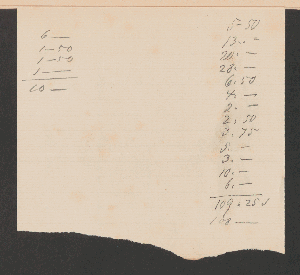 6 —
1 - 50
1 - 50
1 —
10 —
5 - 50
13. -
20. -
28. -
6. 50
4. -
2. -
2. 50
3. 75
5. -
3. -
10. -
6. -
109. 25
108 —